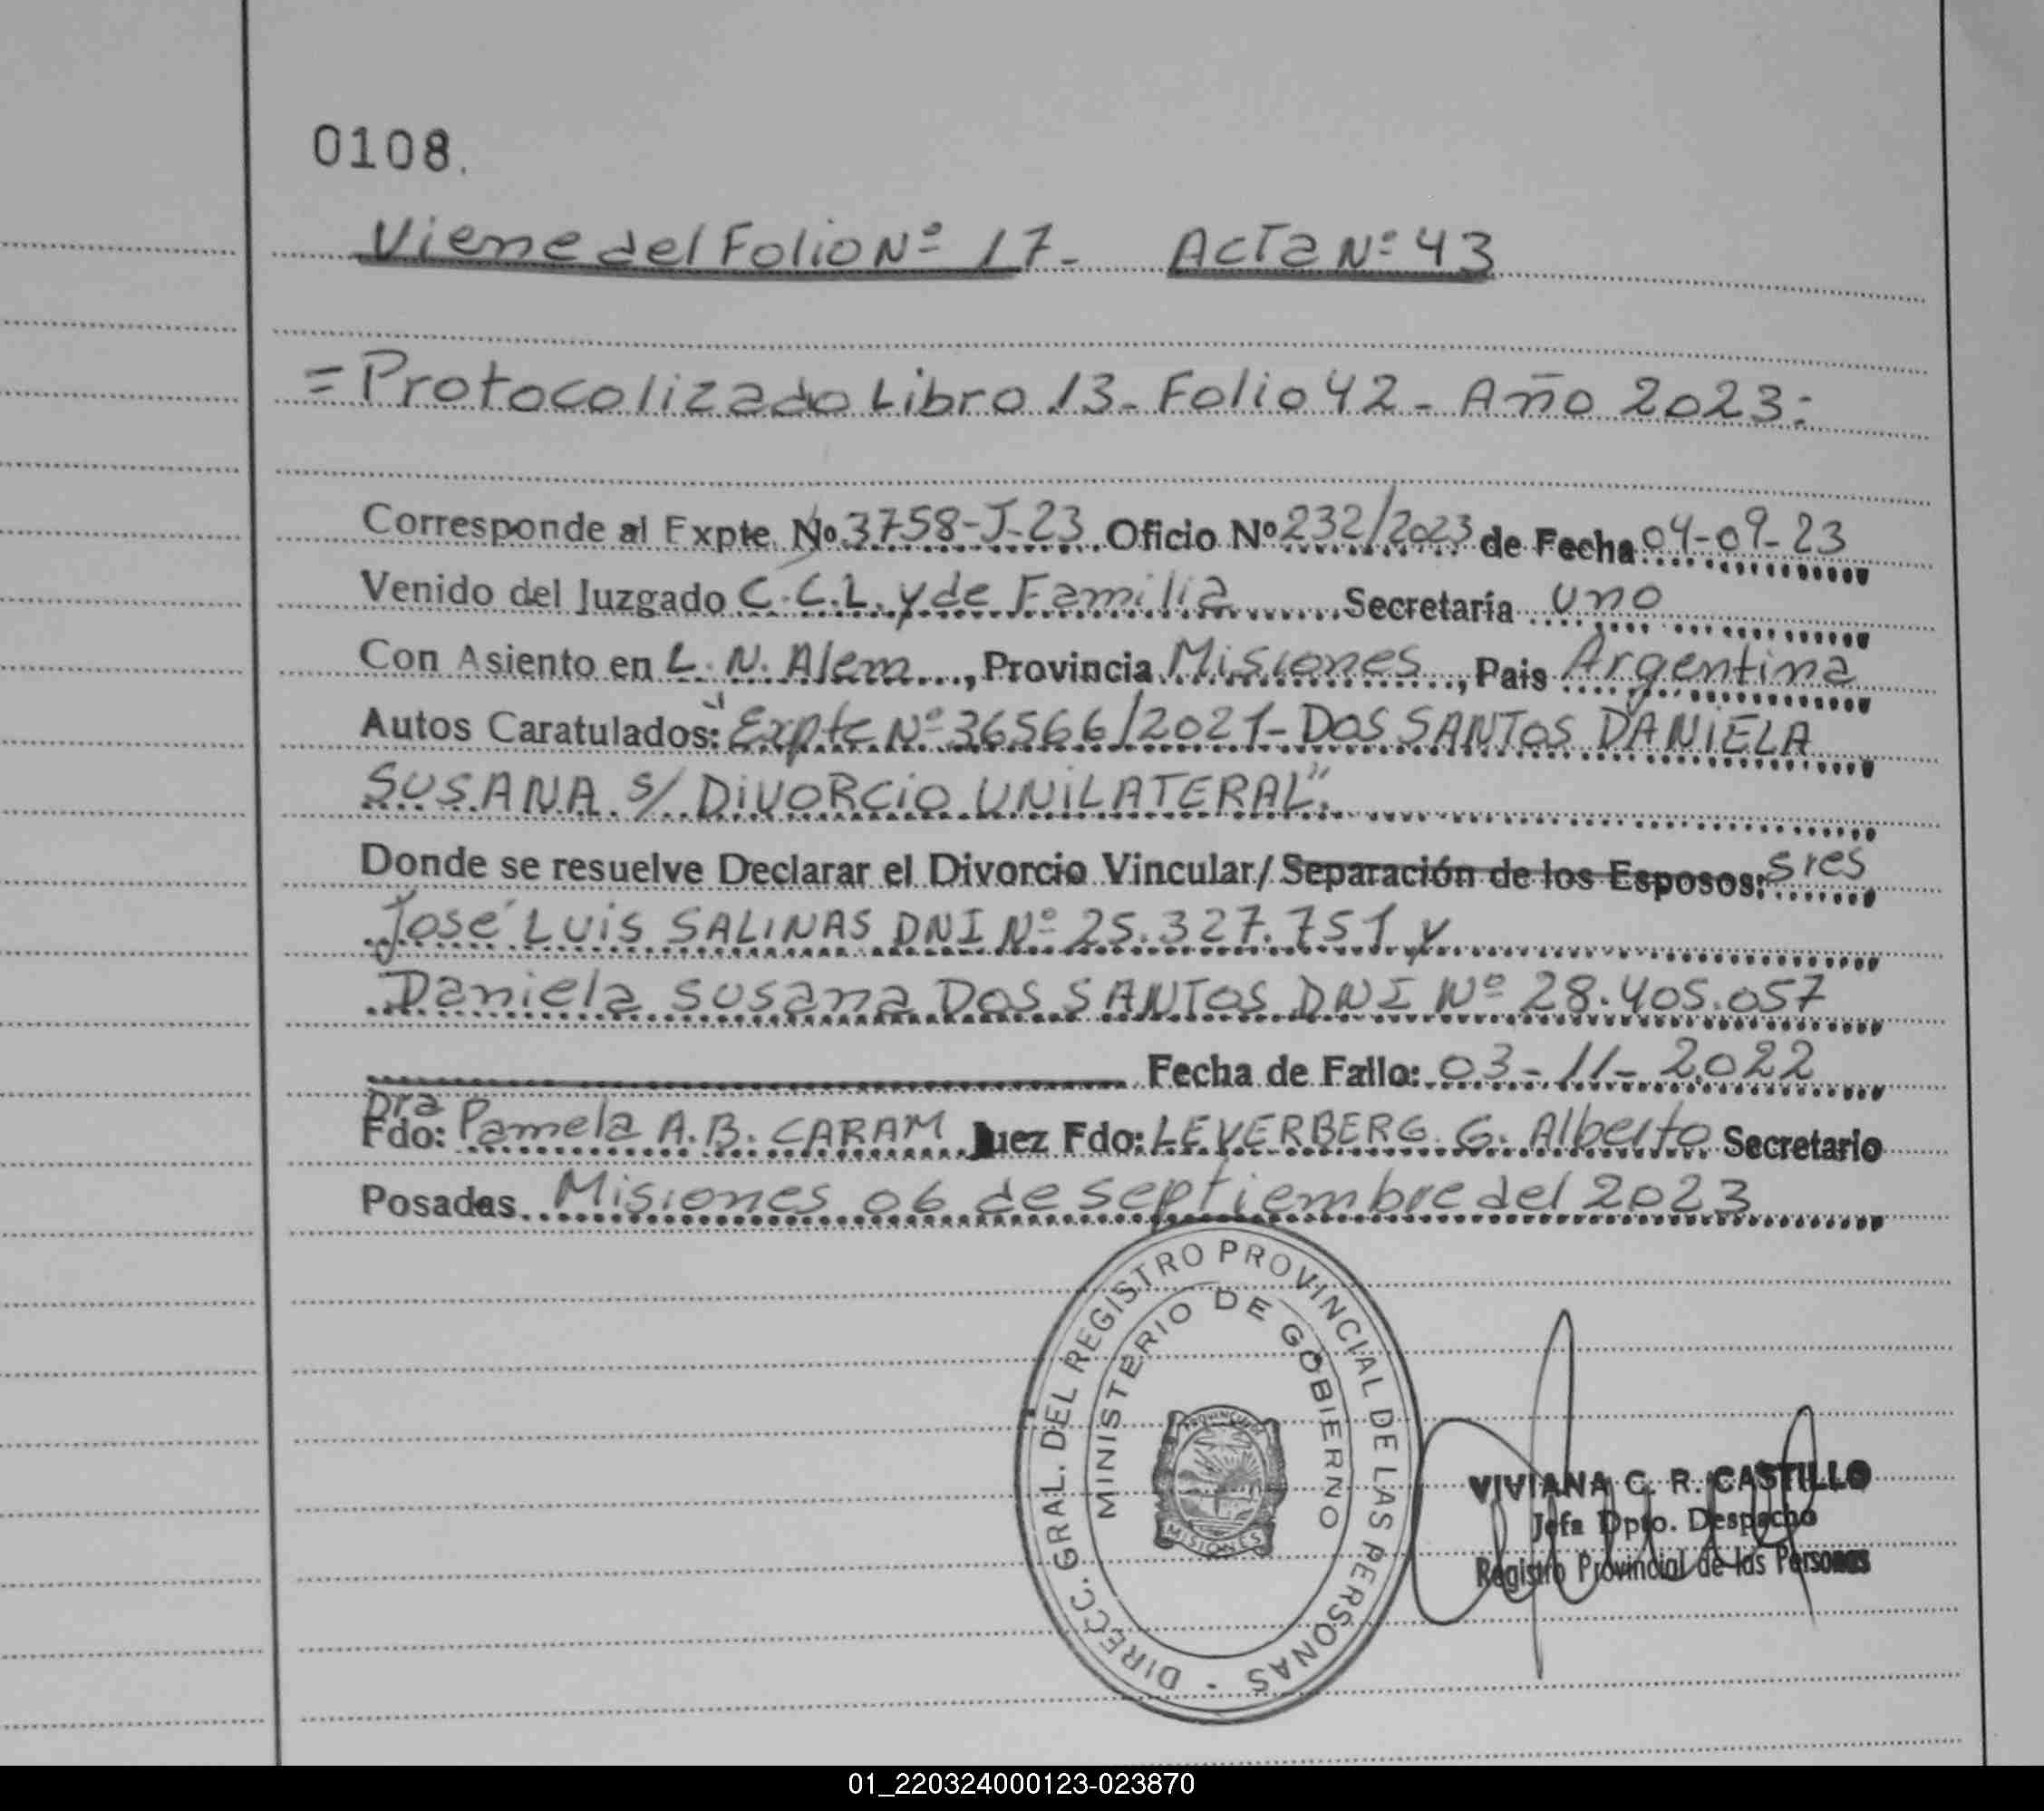 0108.
Viene del Folio Nº 17- Acta Nº 43
=Protocolizado Libro 13- Folio 42- Año 2023:
Corresponde al Expte. Nº 3758-J-23 Oficio Nº 232/2023 de Fecha 04-09-23
Venido del Juzgado C.C.L. y de Familia Secretaría uno
Con Asiento en L.N. Alem, Provincia Misiones, Pais Argentina
Autos Caratulados: "Expte Nº 36566/2021- DOS SANTOS DANIELA
SUSANA s/ DIVORCIO UNILATERAL".
Donde se resuelve Declarar el Divorcio Vincular/ Separación de los Esposos: sres
José Luis SALINAS DNI Nº 25.327.751 y
Daniela Susana DOS SANTOS DNI Nº 28.405.057
Fecha de Fallo: 03-11-2022
Dra
Fdo: Pamela A.B. CARAM Juez Fdo: LEVERBERG G. Alberto Secretario
Posadas Misiones 06 de septiembre del 2023
DIRECC. GRAL. DEL REGISTRO PROVINCIAL DE LAS PERSONAS -
MINISTERIO DE GOBIERNO
MISIONES
VIVIANA C. R. CASTILLO
Jefa Dpto. Despacho
Registro Provincial de las Personas
01_220324000123-023870